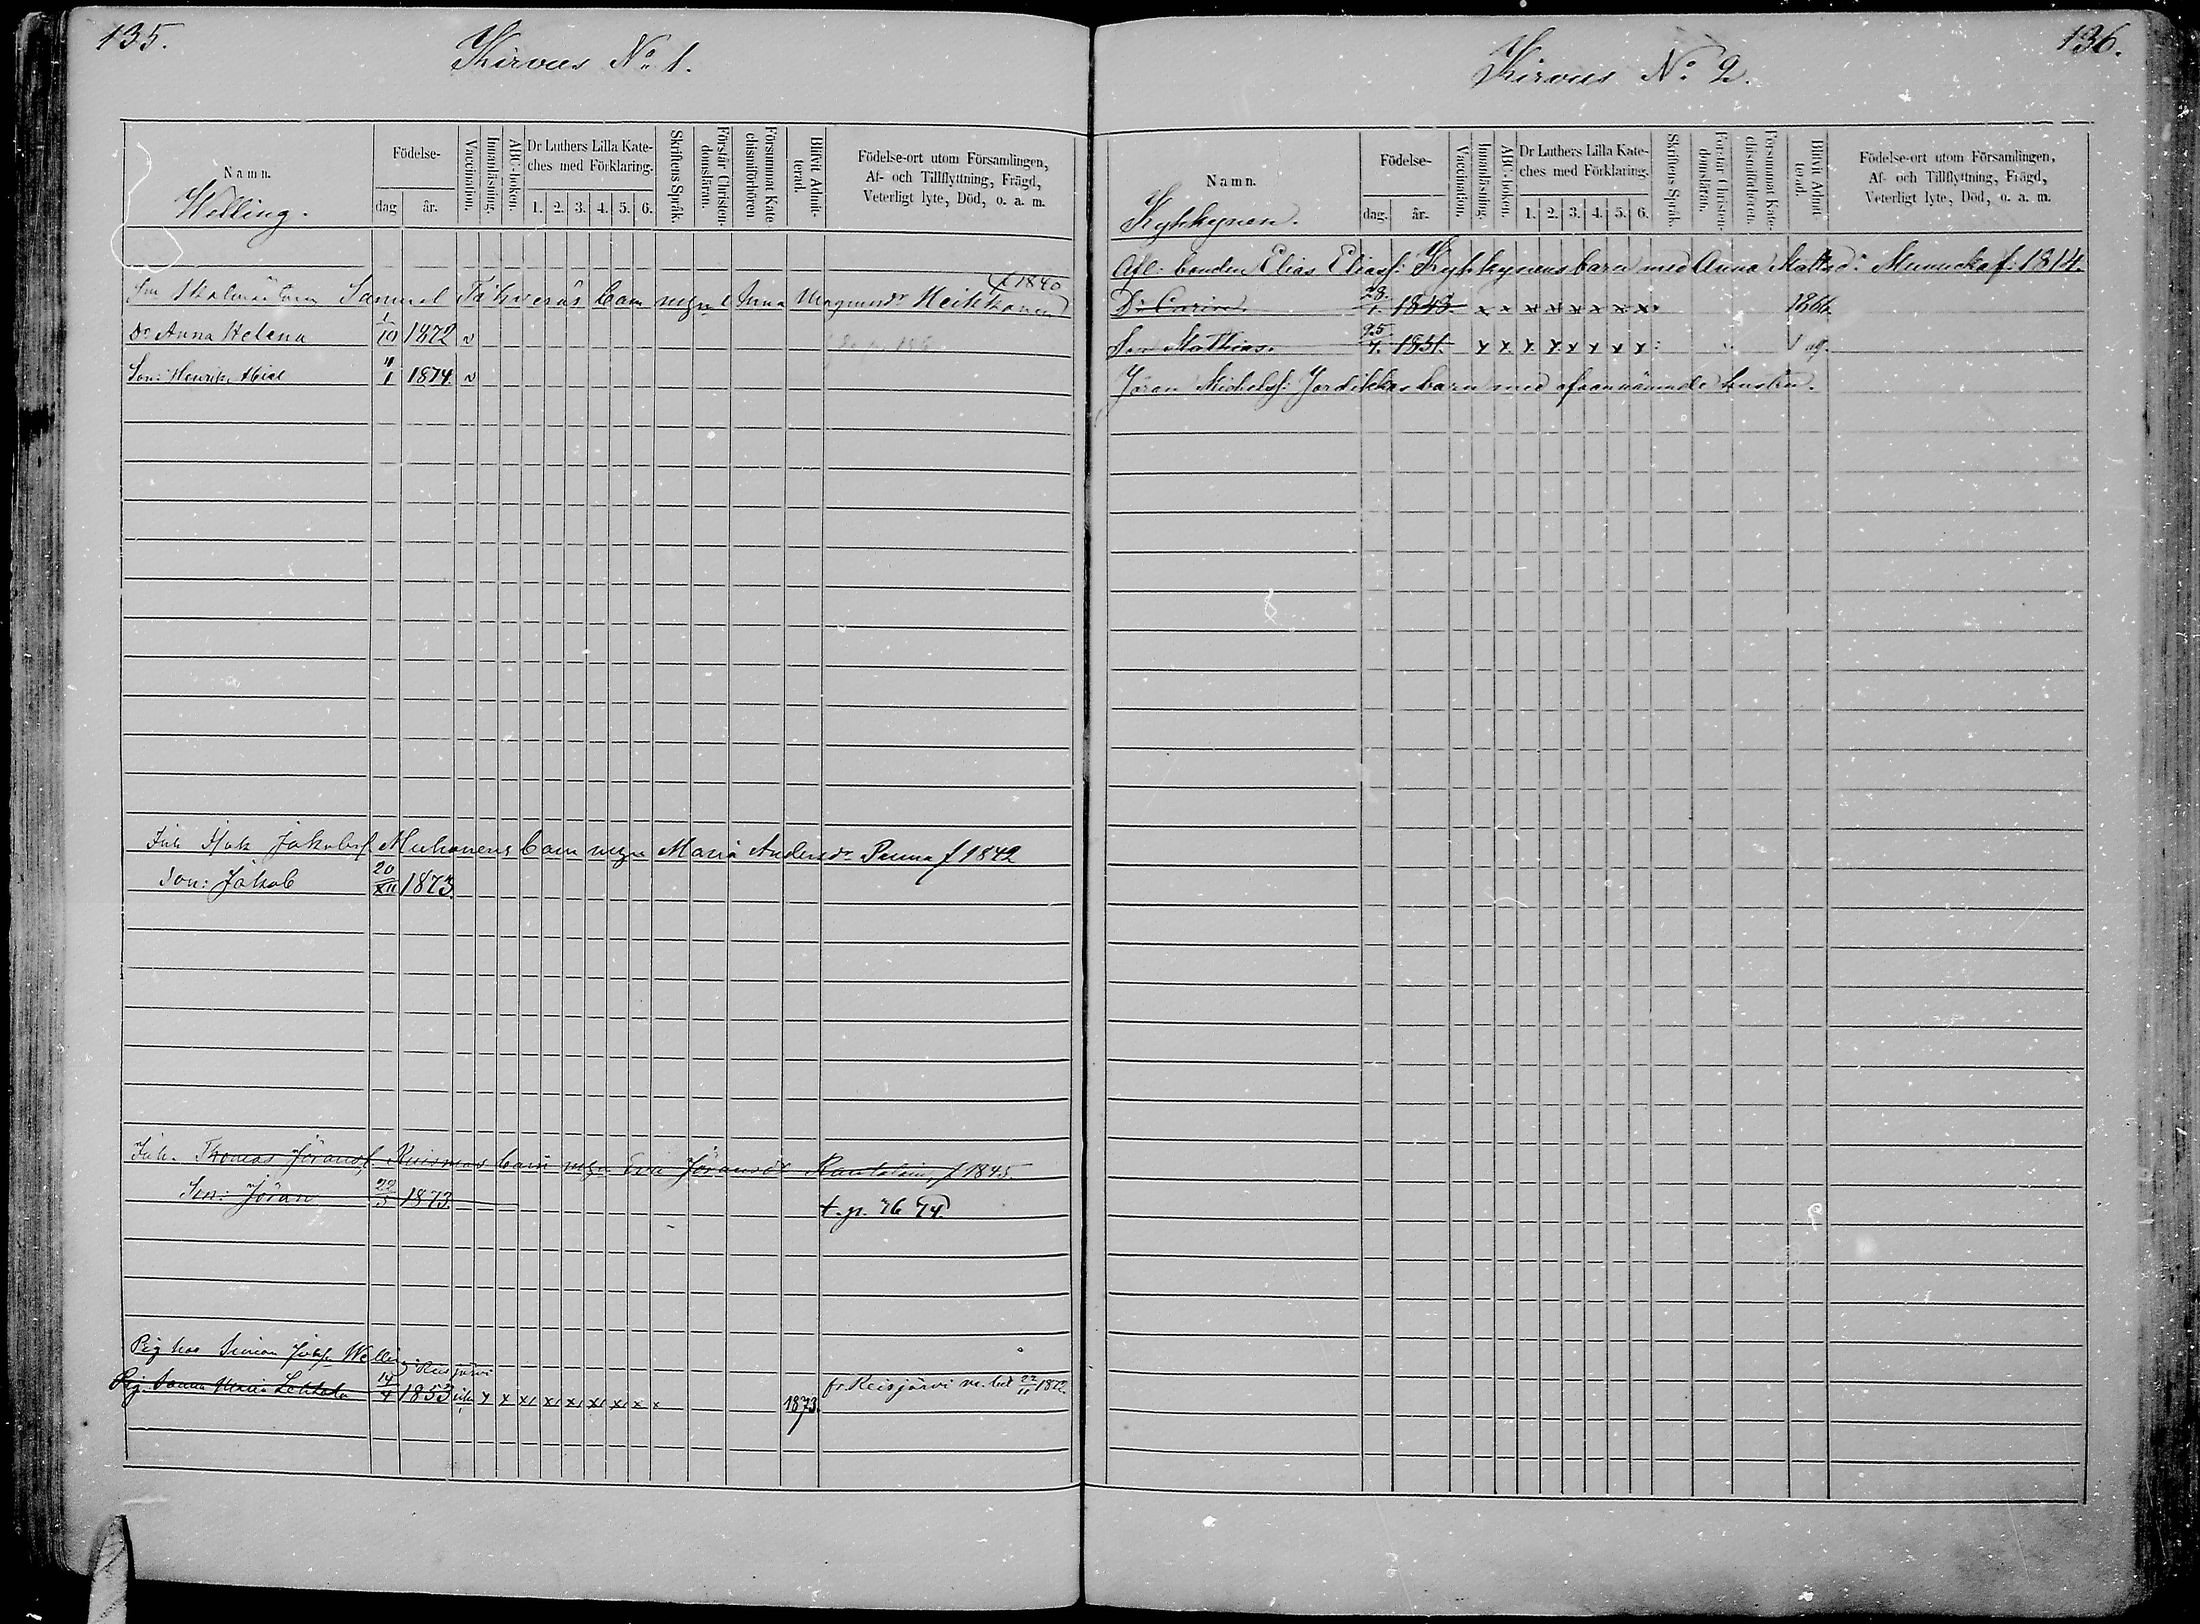 135.
Kirvus No 1.
Namn.
Welling.
Födelse-
dag
år.
Vaccination.
Innanläsning.
ABC-boken.
Dr Luthers Lilla Kate-
ches med Förklaring.
1. 2. 3. 4. 5. 6.
Skriftens Språk.
Förstår Christen-
domsläran.
Försummat Kate-
chismiförhören
Blifvit Admit-
terad.
Födelse-ort utom Församlingen,
Af- och Tillflyttning, Frägd,
Veterligt lyte, Död, o. a. m.
f 1840
Samuel barn Anna Magnusdr Heikkonen
Dr Anna Helena 1/10 1872 v
Son: Henrik Abiel 4/1 1874 v
Inh Jakobsf. Muhonens barn Maria Andersdr Penna f 1842
Son: Jakob 20/XII 1873
Inh. Thomas Jöransf. Ruismas barn Eva Jöransdr Rautalin f 1845
Son: Jöran 22/5 1873
t. p. 76 74
Pig hos Simon Welling Reisjärvi
Pig. Sanna Maria Lehtola 14/4 1853 x x x x x x x x x 1873. fr. Reisjärvi m. bet 22/11 1872
136.
Kirvus No 2.
Namn.
Kykkynen.
Födelse-
dag.
år.
Vaccination.
Innanläsning.
ABC-boken.
Dr Luthers Lilla Kate-
ches med Förklaring.
1. 2. 3. 4. 5. 6.
Skriftens Språk.
Förstår Christen-
domsläran.
Försummat Kate-
chismiförhören.
Blifvit Admit-
terad.
Födelse-ort utom Församlingen,
Af- och Tillflyttning, Frägd,
Veterligt lyte, Död, o. a. m.
Afl. bonden Elias Eliasf: Kykkynens barn med Anna Mattsd: Munucka f. 1814.
Dr Carin 28/1. 1843. x x x x x x x x x 1866
Son Mathias. 25/4. 1851. x x x x x x x x
Jöran Michelsf: Jordikkas barn med ofvannämnde hustru.